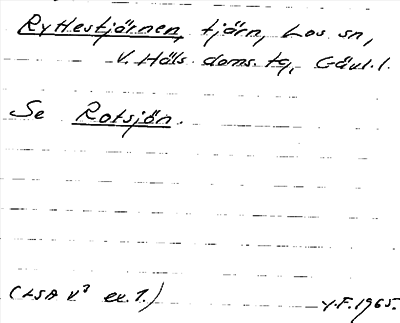 Ryttestjärnen, tjärn, Los sn,
V. Häls. doms. tg, Gävl. l.
Se Rotsjön.
(LSA v³ ex. 1.)
Y.F. 1965.